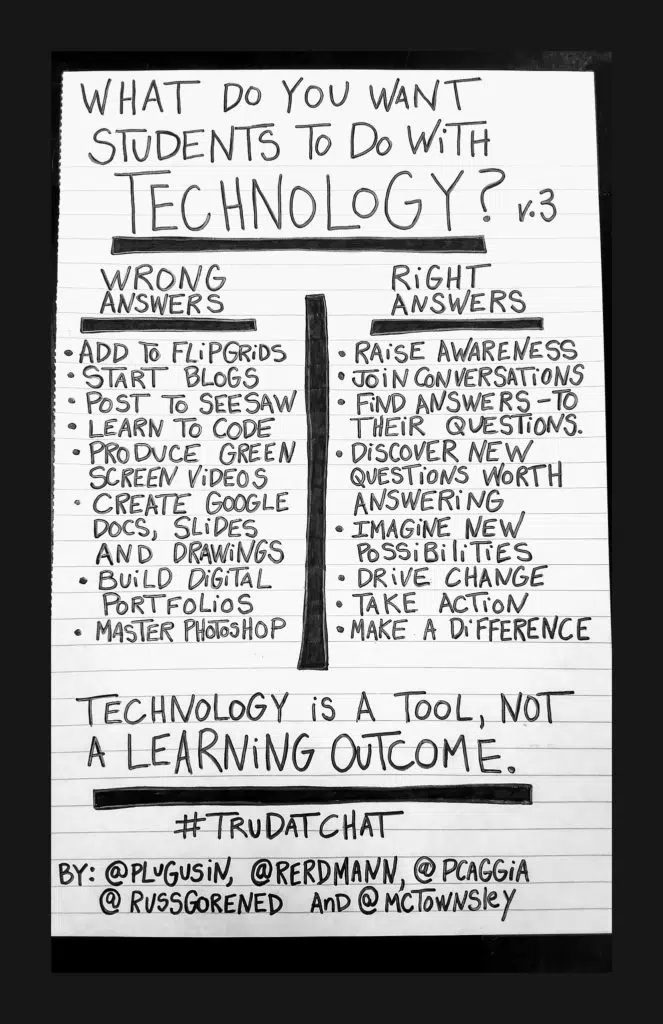 WHAT DO YOU WANT
STUDENTS TO DO WITH
TECHNOLOGY? v.3
WRONG
ANSWERS
• ADD TO FLIPGRIDS
• START BLOGS
• POST TO SEESAW
• LEARN TO CODE
• PRODUCE GREEN
SCREEN VIDEOS
• CREATE GOOGLE
DOCS, SLIDES
AND DRAWINGS
• BUILD DIGITAL
PORTFOLIOS
• MASTER PHOTOSHOP
RIGHT
ANSWERS
• RAISE AWARENESS
• JOIN CONVERSATIONS
• FIND ANSWERS - TO
THEIR QUESTIONS.
• DISCOVER NEW
QUESTIONS WORTH
ANSWERING
• IMAGINE NEW
POSSIBILITIES
• DRIVE CHANGE
• TAKE ACTION
• MAKE A DIFFERENCE
TECHNOLOGY IS A TOOL, NOT
A LEARNING OUTCOME.
#TRUDATCHAT
BY: @PLUGUSIN, @RERDMANN, @PCAGGIA
@RUSSGORENED AND @MCTOWNSLEY